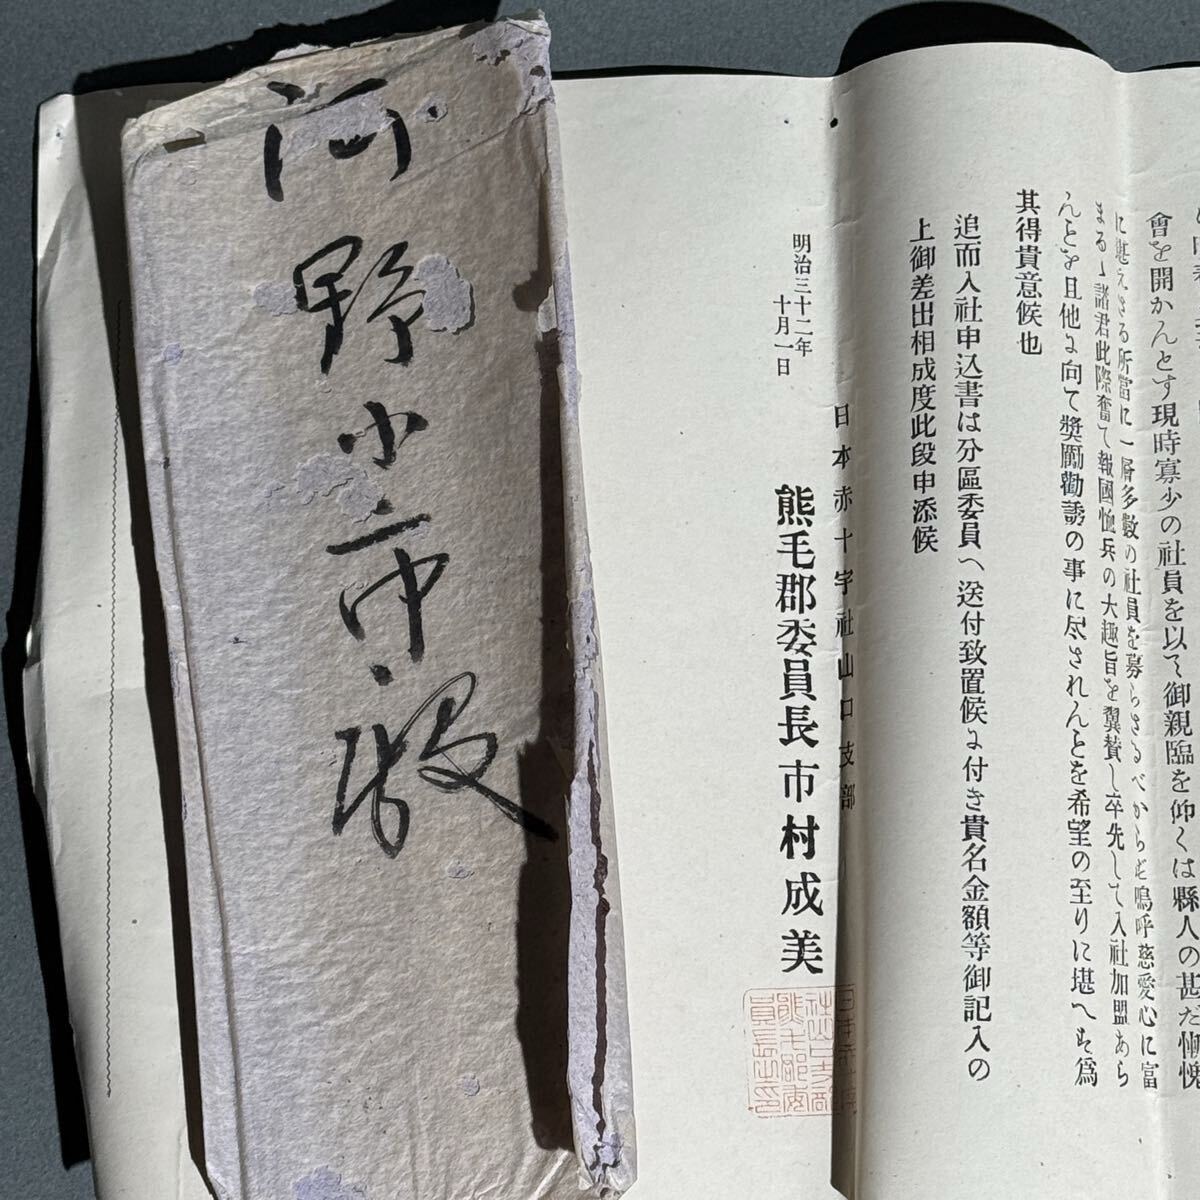 會を開かんとす現時寡少の社員を以て御親臨を仰くは縣人の甚だ慚愧
に堪えさる所當に一層多数の社員を募らさるべからず嗚呼慈愛心に富
まるゝ諸君此際奮て報國恤兵の大趣旨を翼賛し卒先して入社加盟あら
んとを且他に向て奬勵勸誘の事に尽されんとを希望の至りに堪へず爲
其得貴意候也
追而入社申込書は分區委員へ送付致置候に付き貴名金額等御記入の
上御差出相成度此段申添候
日本赤十字社山口支部
明治三十二年
十月一日
熊毛郡委員長市村成美
河野小市殿